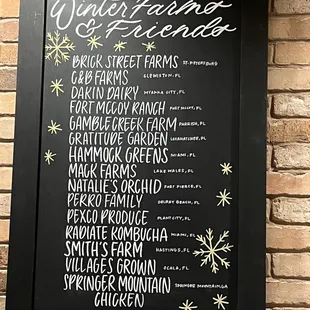 Winter Farms
& Friends
BRICK STREET FARMS ST. PETERSBURG
C&B FARMS CLEWISTON, FL
DAKIN DAIRY MYAKKA CITY, FL
FORT MCCOY RANCH FORT MCCOY, FL
GAMBLE CREEK FARM PARRISH, FL
GRATITUDE GARDEN LOXAHATCHEE, FL
HAMMOCK GREENS MIAMI, FL
MACK FARMS LAKE WALES, FL
NATALIE'S ORCHID FORT PIERCE, FL
PERRO FAMILY DELRAY BEACH, FL
PEXCO PRODUCE PLANT CITY, FL
RADIATE KOMBUCHA MIAMI, FL
SMITH'S FARM HASTINGS, FL
VILLAGES GROWN OCALA, FL
SPRINGER MOUNTAIN SPRINGER MOUNTAIN, GA
CHICKEN